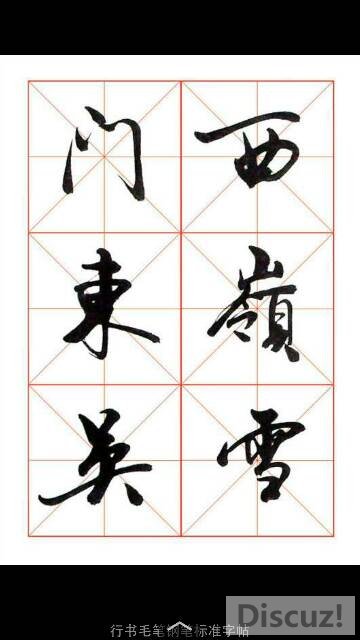 西嶺雪
门東吴
行书毛笔钢笔标准字帖
Discuz!